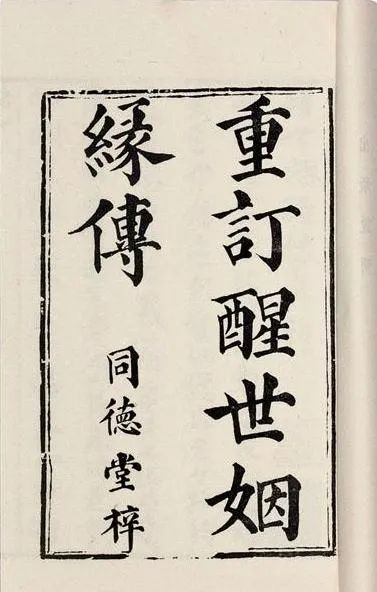 重訂醒世姻
緣傳
同德堂梓